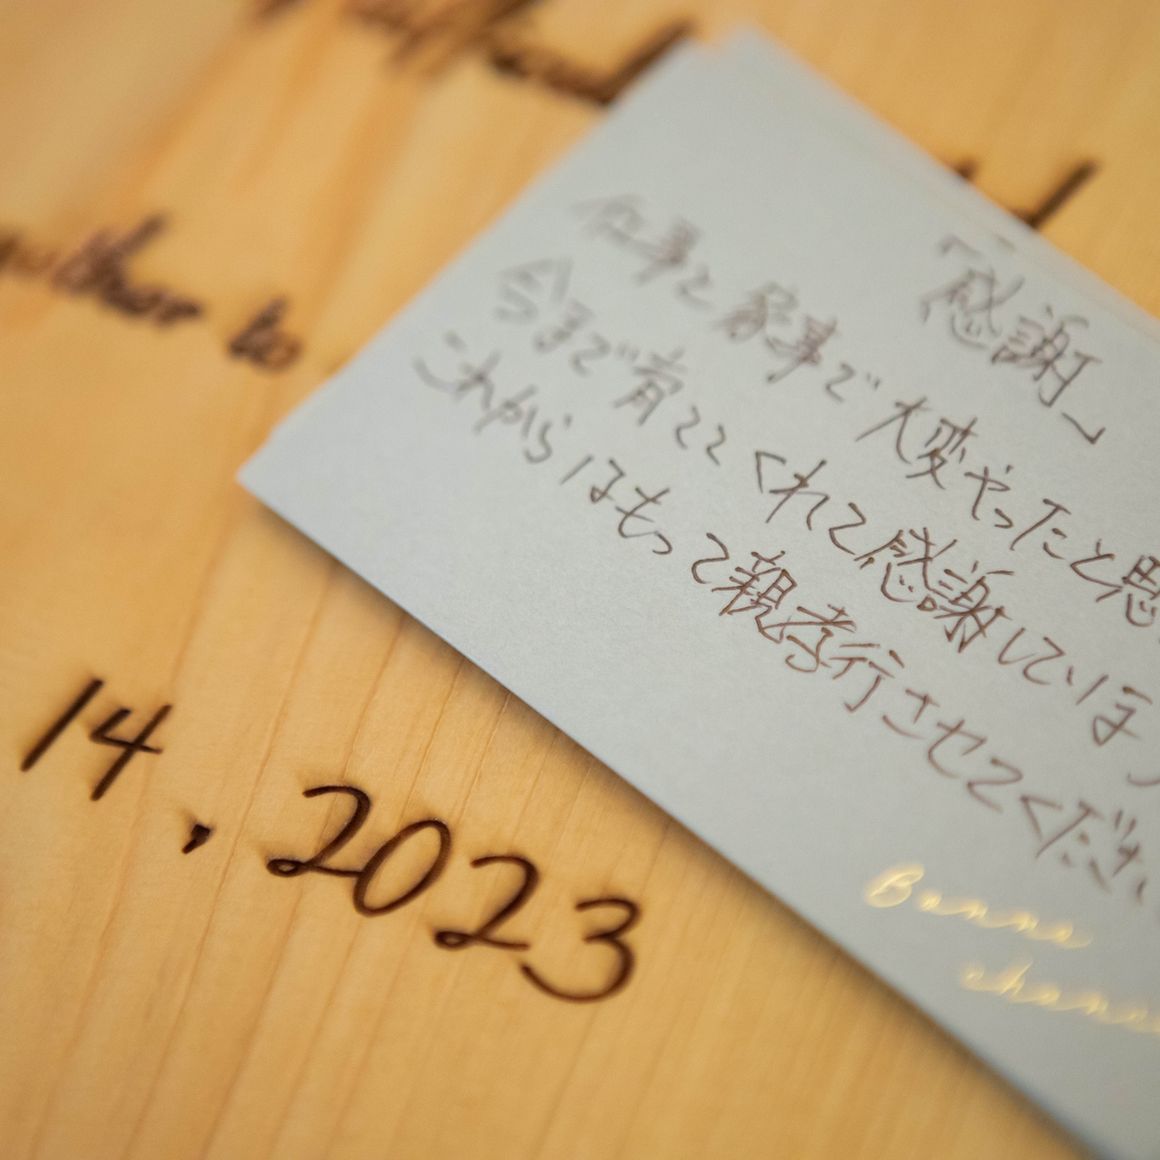 to
「感謝」
仕事と家事で大変やったと思
今まで育ててくれて感謝しています
これからはもって親孝行させてください
14, 2023
Bonne
chance